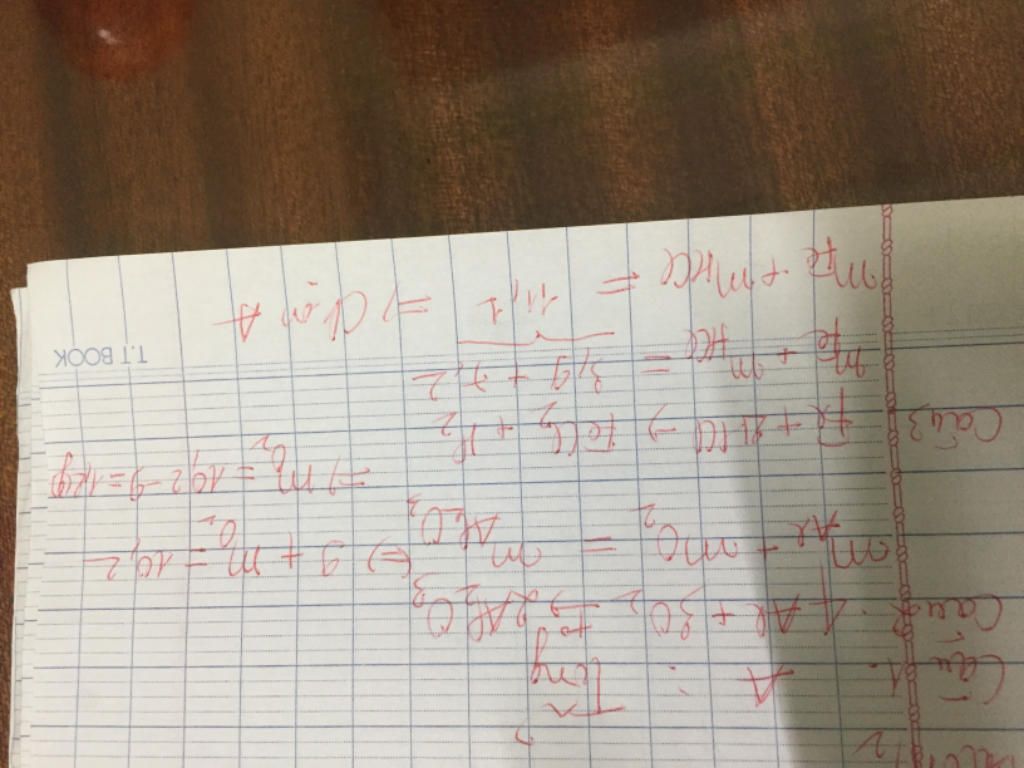 Câu 1. A : Tổng
Câu 2. 4Al + 3O2 -t°-> 2Al2O3
mAl + mO2 = mAl2O3 <=> 9 + mO2 = 10,2
=> mO2 = 10,2 - 9 = 1,2g
Câu 3 Fe + 2HCl -> FeCl2 + H2
mFe + mHCl = 3,9 + 7,2
mFe + mHCl = 11,1 => Chọn A
T.T BOOK